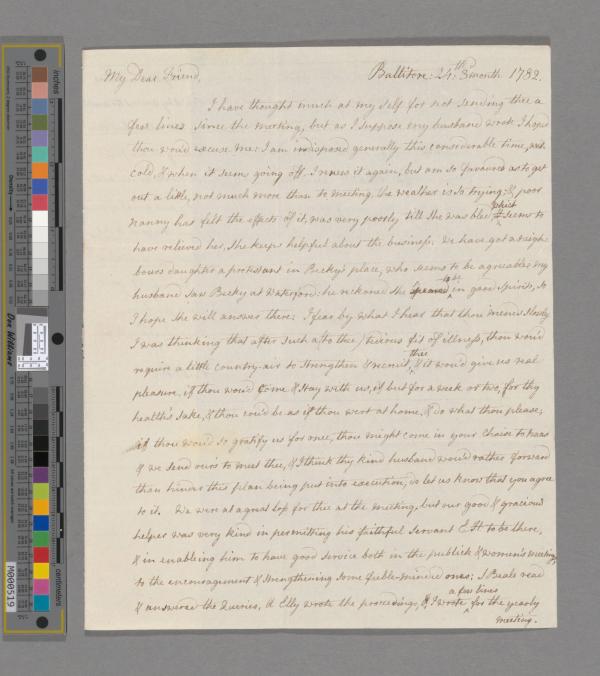 My Dear Friend, Ballitore: 24th: 3d month 1782.
I have thought much at my self for not sending thee a
few lines since the meeting, but as I suppose my husband wrote I hope
thou would excuse me: I am indisposed generally this considerable time, with
cold, & when it seems going off, I renew it again, but am so favoured as to get
out a little, not much more than to meeting, the weather is so trying: & poor
nanny has felt the effects of it, was very poorly till she was bled, which seems to
have relieved her, she keeps helpful about the business. We have got a neigh-
bours daughter a protestant in Becky's place, who seems to be agreeable: my
husband saw Becky at Waterford: he reckoned she was in good spirits, so
I hope she will answer there: I fear by what I hear that thou mends slowly
I was thinking that after such a (to thee) tedious fit of illness, thou would
require a little country-air to strengthen & recruit thee, & it would give us real
pleasure, if thou would come & stay with us, if but for a week or two, for thy
health's sake, & thou could be as if thou wert at home, & do what thou please;
if thou would so gratify us for once, thou might come in your Chaise to
& we send ours to meet thee, & I think thy kind husband would rather forward
than hinder this plan being put into execution; so let us know that you agree
to it. We were at a great loss for thee at the meeting, but our good & gracious
helper was very kind in permitting his faithful servant to be there,
& in enableing him to have good service both in the publick & women's meeting,
to the encouragement & strengthening some feeble-minded ones: J Beale read
& answered the Queries, A Elly wrote the proceedings, & I wrote a few lines for the yearly
meeting.
inches
centimeters
Don Williams
M000519